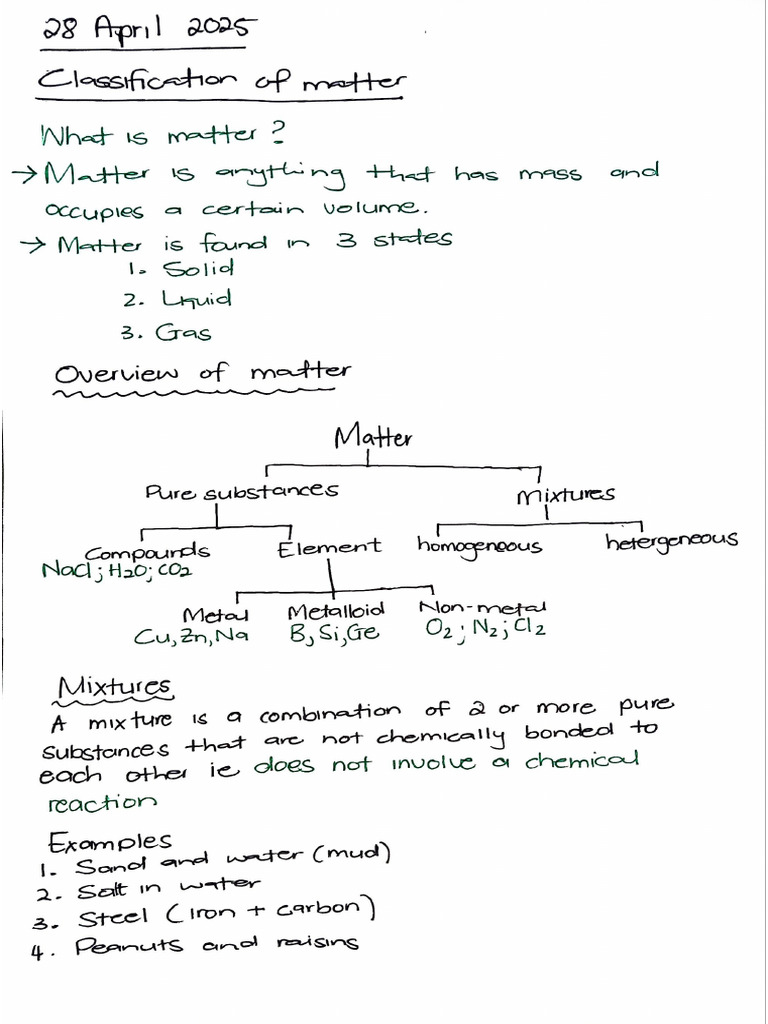 28 April 2025
Classification of matter
What is matter?
→ Matter is anything that has mass and
occupies a certain volume.
→ Matter is found in 3 states
1. Solid
2. Liquid
3. Gas
Overview of matter
Matter
Pure substances Mixtures
Compounds Element homogeneous hetergeneous
NaCl; H2O; CO2
Metal Metalloid Non-metal
Cu, Zn, Na B, Si, Ge O2; N2; Cl2
Mixtures
A mixture is a combination of 2 or more pure
substances that are not chemically bonded to
each other ie does not involve a chemical
reaction
Examples
1. Sand and water (mud)
2. Salt in water
3. Steel (Iron + carbon)
4. Peanuts and raisins